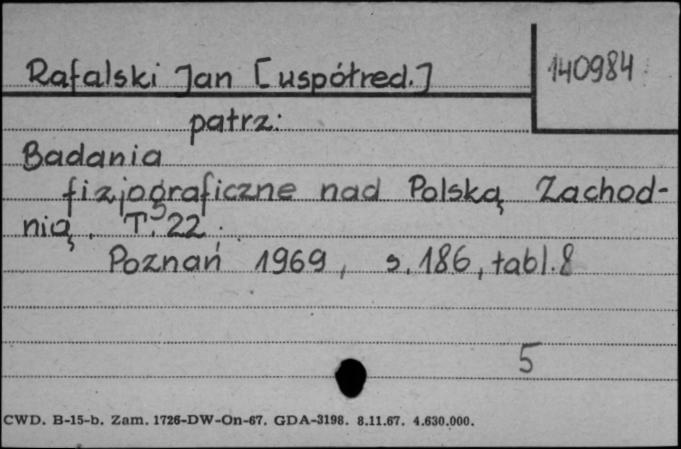 Rafalski Jan [uspółred.]
140984
patrz:
Badania
fizjograficzne nad Polską Zachod-
nią. T. 22.
Poznań 1969, s. 186, tabl. 8
5
CWD. B-15-b. Zam. 1726-DW-On-67. GDA-3198. 8.11.67. 4.630.000.